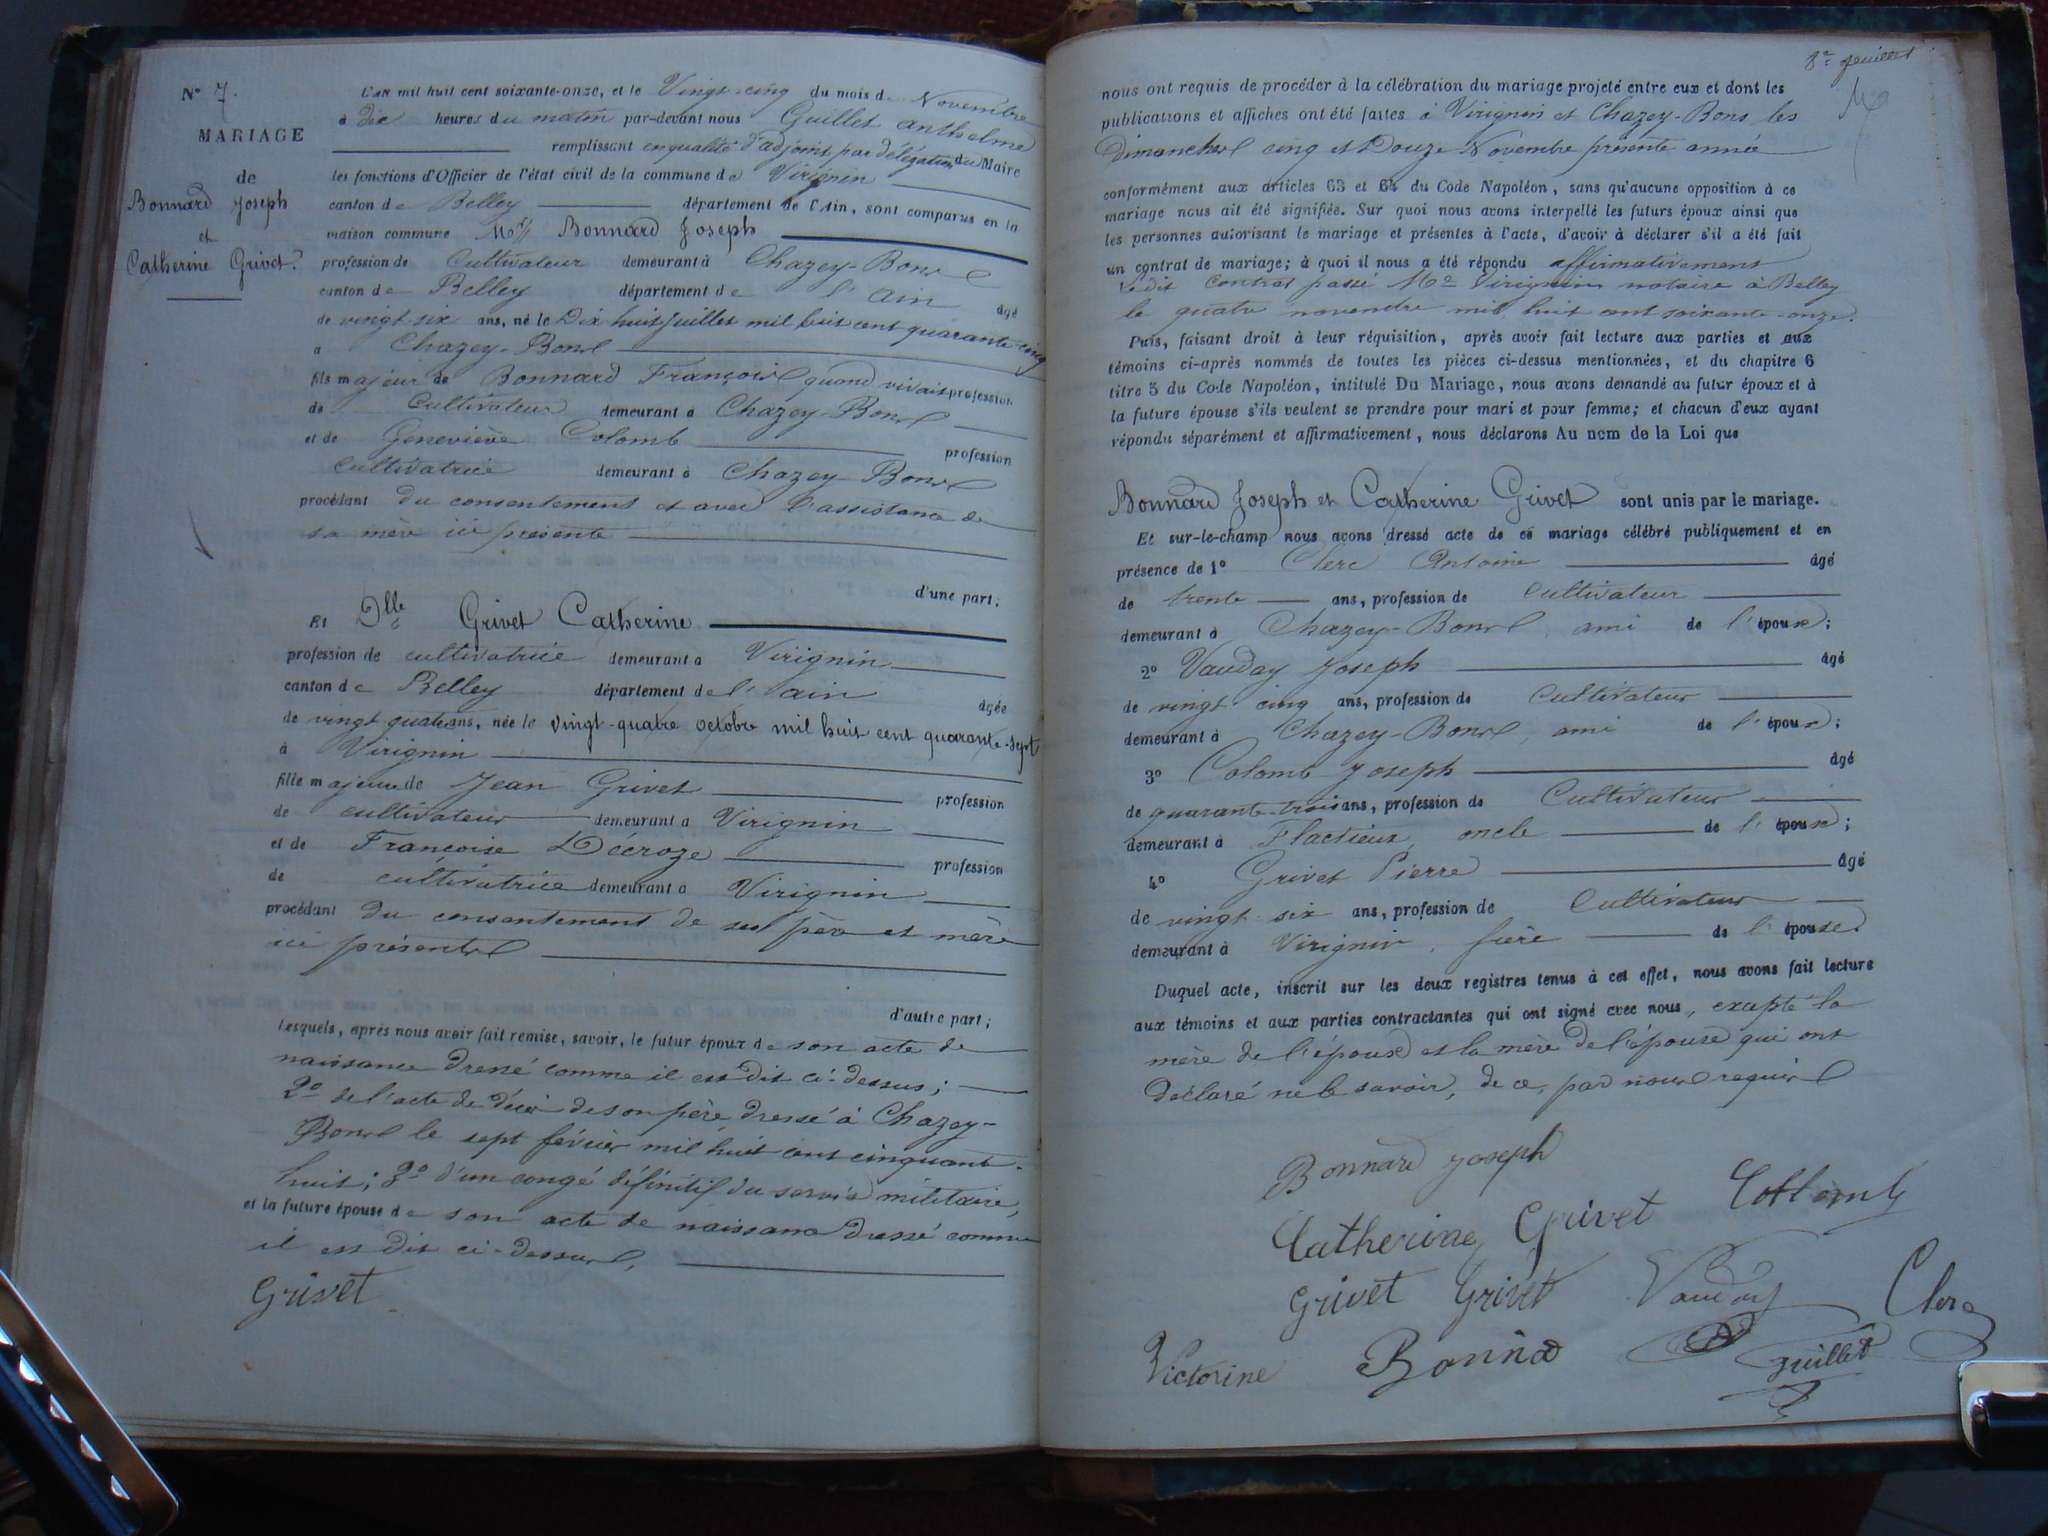 N° 7.
MARIAGE
de
Bonnard Joseph
et
Catherine Grivet.
L'AN mil huit cent soixante-onze, et le Vingt-cinq du mois de Novembre
à dix heures du matin par-devant nous Guillet anthelme
remplissant en qualité d'adjoint par délégation du Maire
les fonctions d'Officier de l'état civil de la commune de Virignin
canton de Belley département de l'Ain, sont comparus en la
maison commune Bonnard Joseph
profession de Cultivateur demeurant à Chazey-Bons
canton de Belley département de l'ain âgé
de vingt six ans, né le Dix huit juillet mil huit cent quarante-cinq
à Chazey-Bons
fils majeur de Bonnard François quand vivait profession
de Cultivateur demeurant à Chazey-Bons
et de Geneviève Colomb profession
Cultivatrice demeurant à Chazey-Bons
procédant du consentement et avec l'assistance de
sa mère ici présente
d'une part;
Et Dlle Grivet Catherine
profession de cultivatrice demeurant à Virignin
canton de Belley département de l'ain âgée
de vingt quatre ans, née le vingt-quatre octobre mil huit cent quarante-sept
à Virignin
fille majeure de Jean Grivet profession
de cultivateur demeurant à Virignin
et de Françoise Décroze profession
de cultivatrice demeurant à Virignin
procédant du consentement de ses père et mère
ici présents
d'autre part;
Lesquels, après nous avoir fait remise, savoir, le futur époux de son acte de
naissance dressé comme il est dit ci-dessus;
2° de l'acte de décès de son père dressé à Chazey-
Bons le sept février mil huit cent cinquante-
huit; 3° d'un congé définitif du service militaire,
et la future épouse de son acte de naissance dressé comme
il est dit ci-dessus,
Grivet
nous ont requis de procéder à la célébration du mariage projeté entre eux et dont les
publications et affiches ont été faites à Virignin et Chazey-Bons les
Dimanches cinq et Douze Novembre présente année
conformément aux articles 63 et 64 du Code Napoléon, sans qu'aucune opposition à ce
mariage nous ait été signifiée. Sur quoi nous avons interpellé les futurs époux ainsi que
les personnes autorisant le mariage et présentes à l'acte, d'avoir à déclarer s'il a été fait
un contrat de mariage; à quoi il nous a été répondu affirmativement
Ledit contrat passé Me Virignin notaire à Belley
le quatre novembre mil huit cent soixante-onze.
Puis, faisant droit à leur réquisition, après avoir fait lecture aux parties et aux
témoins ci-après nommés de toutes les pièces ci-dessus mentionnées, et du chapitre 6
titre 5 du Code Napoléon, intitulé Du Mariage, nous avons demandé au futur époux et à
la future épouse s'ils veulent se prendre pour mari et pour femme; et chacun d'eux ayant
répondu séparément et affirmativement, nous déclarons Au nom de la Loi que
Bonnard Joseph et Catherine Grivet sont unis par le mariage.
Et sur-le-champ nous avons dressé acte de ce mariage célébré publiquement et en
présence de 1° Clerc Antoine âgé
de trente ans, profession de Cultivateur
demeurant à Chazey-Bons, ami de l'époux;
2° Vauday Joseph âgé
de vingt cinq ans, profession de Cultivateur
demeurant à Chazey-Bons, ami de l'époux;
3° Colomb Joseph âgé
de quarante-trois ans, profession de Cultivateur
demeurant à Flactieux, oncle de l'époux;
4° Grivet Pierre âgé
de vingt six ans, profession de Cultivateur
demeurant à Virignin, frère de l'épouse.
Duquel acte, inscrit sur les deux registres tenus à cet effet, nous avons fait lecture
aux témoins et aux parties contractantes qui ont signé avec nous, excepté la
mère de l'époux et la mère de l'épouse qui ont
déclaré ne le savoir, de ce, par nous requis
Bonnard Joseph
Catherine Grivet Collomb
Grivet Grivet Vauday Clerc
Victorine Bonnard Guillet